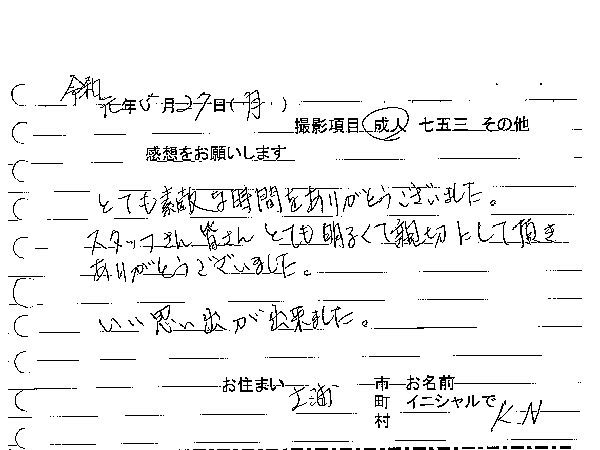 令和
元年5月27日(月)
撮影項目 成人 七五三 その他
感想をお願いします
とても素敵な時間をありがとうございました。
スタッフさん皆さんとても明るくて親切にして頂き
ありがとうございました。
いい思い出が出来ました。
お住まい 土浦 市 お名前
町 イニシャルで K.N
村